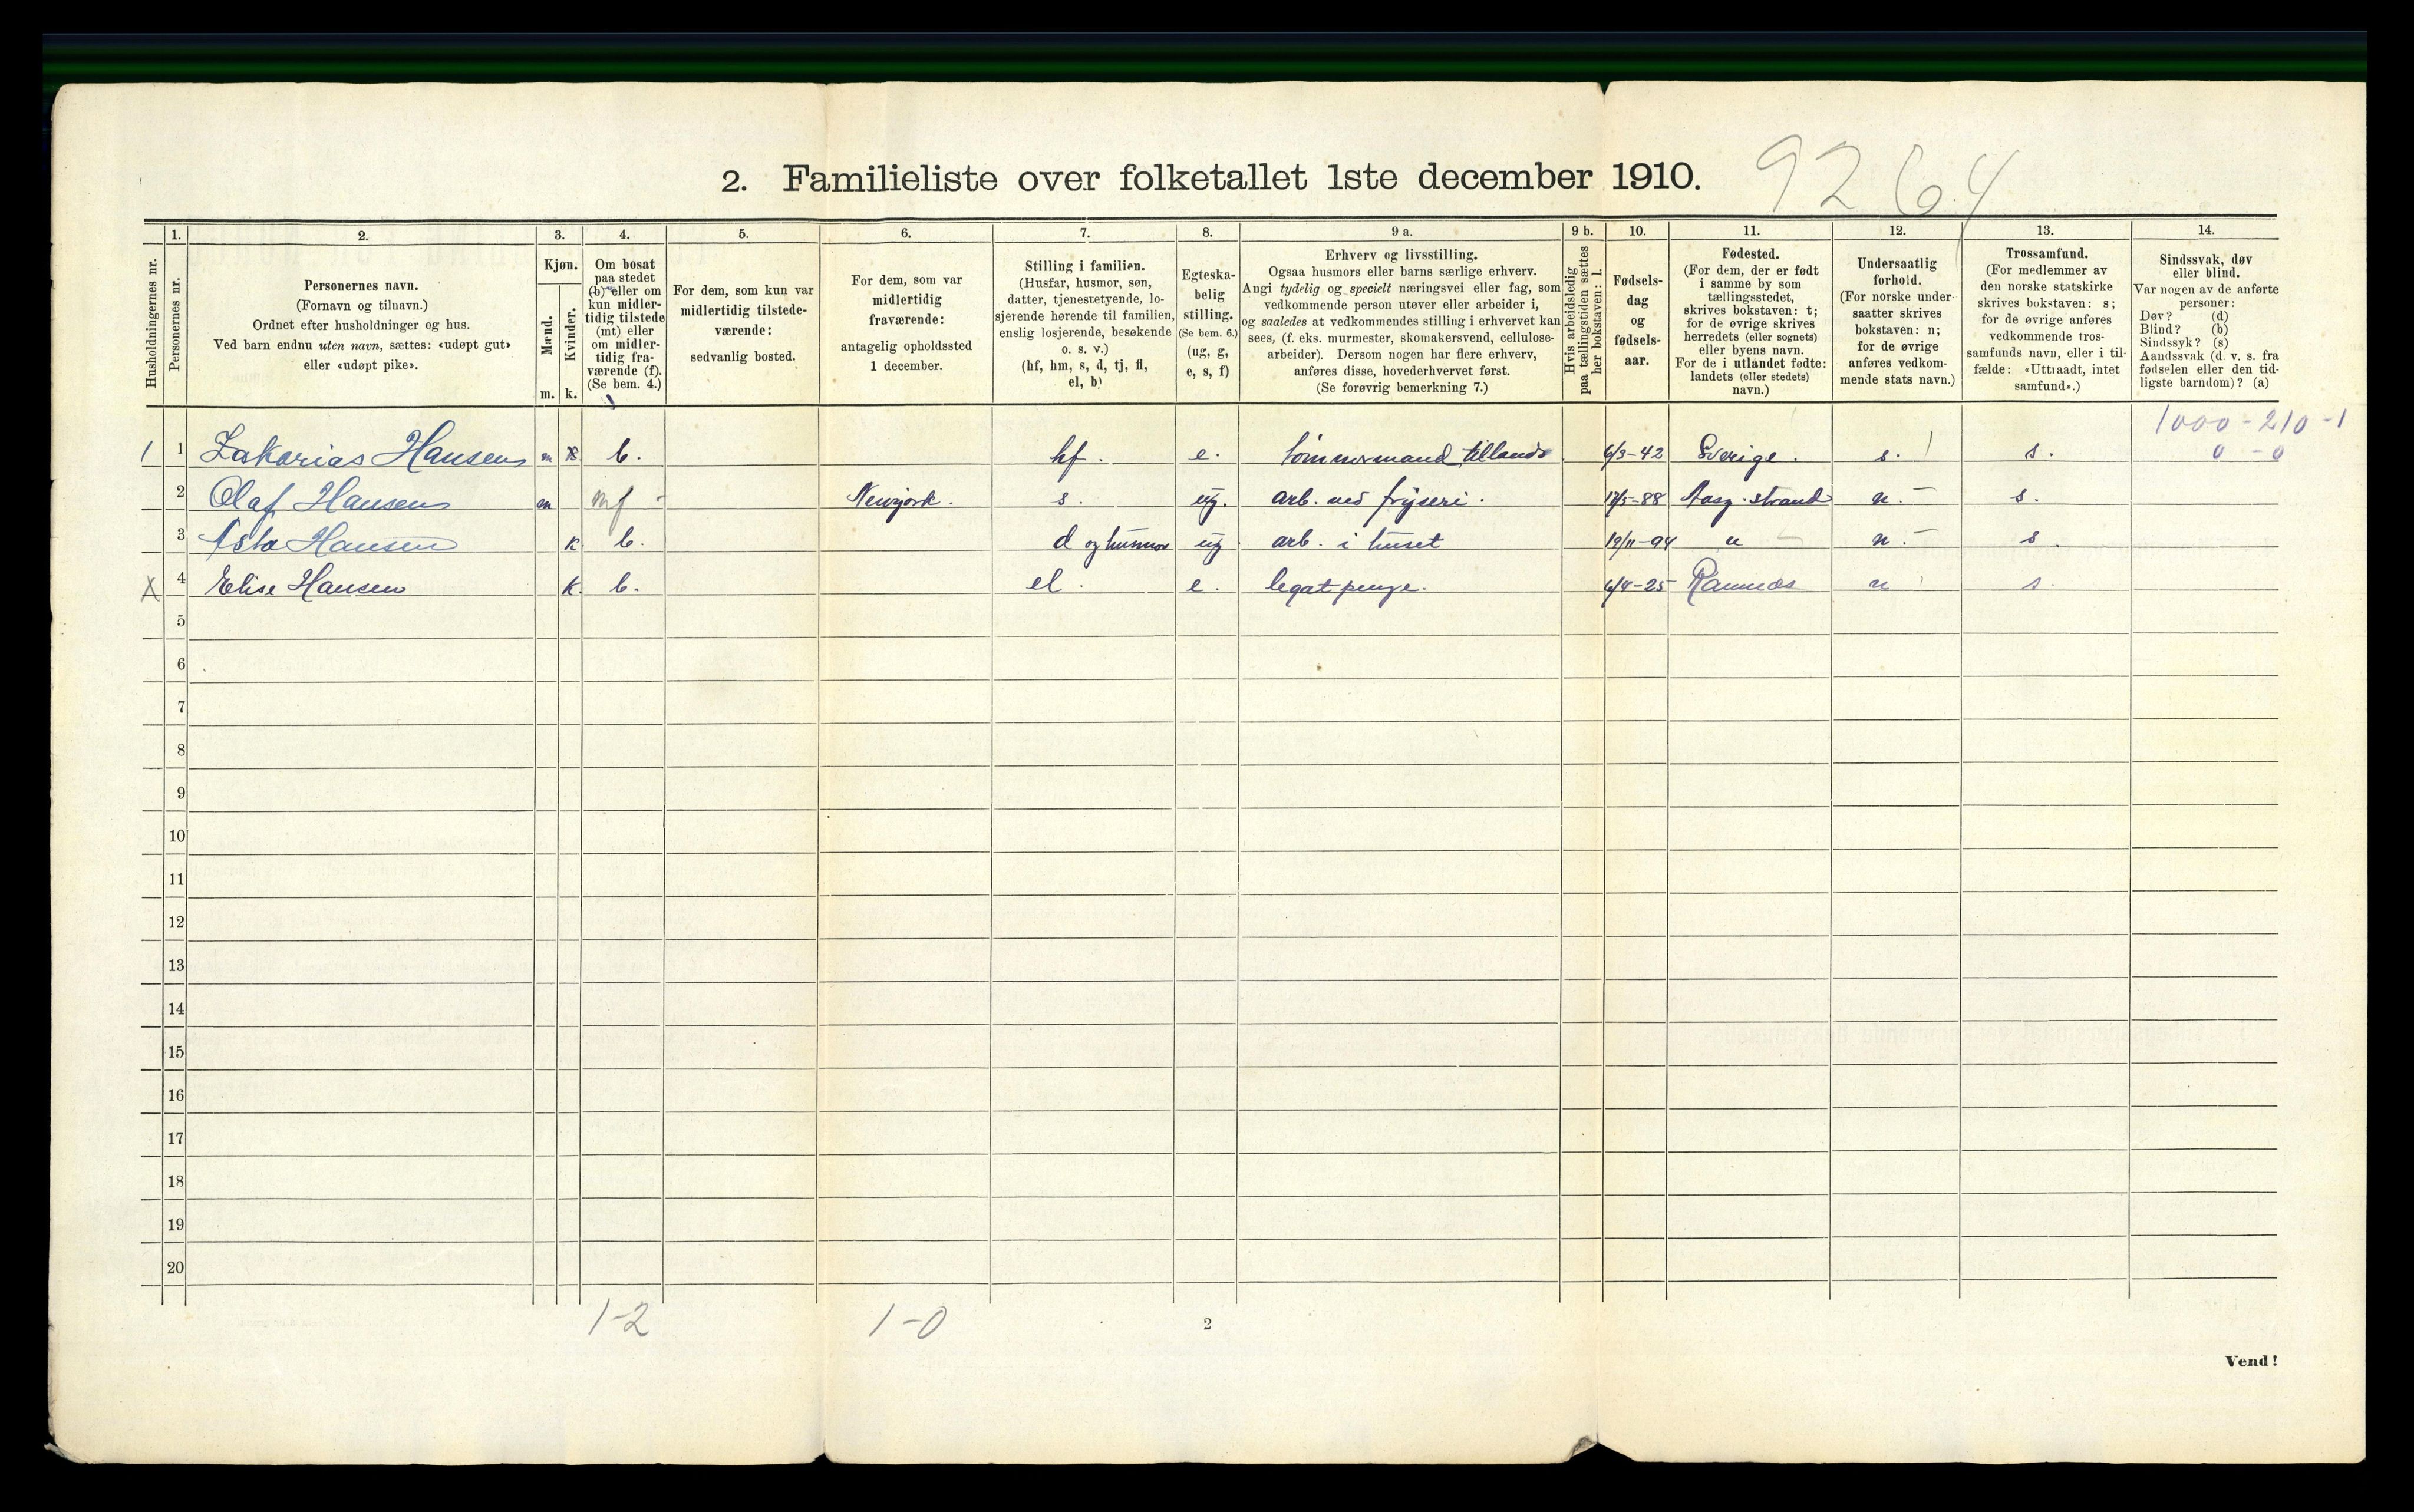 9264
2. Familieliste over folketallet 1ste december 1910.
Husholdningernes nr.
1.
Personernes nr.
2.
Personernes navn.
(Fornavn og tilnavn.)
Ordnet efter husholdninger og hus.
Ved barn endnu uten navn, sættes: «udøpt gut»
eller «udøpt pike».
3.
Kjøn.
Mænd.
Kvinder.
m. k.
4.
Om bosat
paa stedet
(b) eller om
kun midler-
tidig tilstede
(mt) eller
om midler-
tidig fra-
værende (f).
(Se bem. 4.)
5.
For dem, som kun var
midlertidig tilstede-
værende:
sedvanlig bosted.
6.
For dem, som var
midlertidig
fraværende:
antagelig opholdssted
1 december.
7.
Stilling i familien.
(Husfar, husmor, søn,
datter, tjenestetyende, lo-
sjerende hørende til familien,
enslig losjerende, besøkende
o. s. v.)
(hf, hm, s, d, tj, fl,
el, b)
8.
Egteska-
belig
stilling.
(Se bem. 6.)
(ug, g,
e, s, f)
9 a.
Erhverv og livsstilling.
Ogsaa husmors eller barns særlige erhverv.
Angi tydelig og specielt næringsvei eller fag, som
vedkommende person utøver eller arbeider i,
og saaledes at vedkommendes stilling i erhvervet kan
sees, (f. eks. murmester, skomakersvend, cellulose-
arbeider). Dersom nogen har flere erhverv,
anføres disse, hovederhvervet først.
(Se forøvrig bemerkning 7.)
9 b.
Hvis arbeidsledig
paa tællingstiden sættes
her bokstaven: l.
10.
Fødsels-
dag
og
fødsels-
aar.
11.
Fødested.
(For dem, der er født
i samme by som
tællingsstedet,
skrives bokstaven: t;
for de øvrige skrives
herredets (eller sognets)
eller byens navn.
For de i utlandet fødte:
landets (eller stedets)
navn.)
12.
Undersaatlig
forhold.
(For norske under-
saatter skrives
bokstaven: n;
for de øvrige
anføres vedkom-
mende stats navn.)
13.
Trossamfund.
(For medlemmer av
den norske statskirke
skrives bokstaven: s;
for de øvrige anføres
vedkommende tros-
samfunds navn, eller i til-
fælde: «Uttraadt, intet
samfund».)
14.
Sindssvak, døv
eller blind.
Var nogen av de anførte
personer:
Døv? (d)
Blind? (b)
Sindssyk? (s)
Aandssvak (d. v. s. fra
fødselen eller den tid-
ligste barndom)? (a)
1000-210-1
0-0
1 1 Zakarias Hansen m b. hf. e. tømmermand tillands 6/3-42 Sverige. s. s.
2 Olaf Hansen m mf Newyork. s. ug. arb. ved fryseri. 17/5-88 Aasg.strand n. s.
3 Asta Hansen k. b. d og husmor ug arb. i huset 19/11-94 " n. s.
X 4 Elise Hansen k. b. el. e. legatpenge. 6/4-25 Ramnæs n s.
5
6
7
8
9
10
11
12
13
14
15
16
17
18
19
20
1-2 1-0
2
Vend!